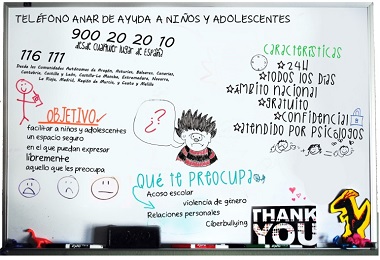 TELÉFONO ANAR DE AYUDA A NIÑOS Y ADOLESCENTES
900 20 20 10
desde cualquier lugar de España
116 111
Desde las Comunidades Autónomas de Aragón, Asturias, Baleares, Canarias,
Cantabria, Castilla y León, Castilla-La Mancha, Extremadura, Navarra,
La Rioja, Madrid, Región de Murcia, y Ceuta y Melilla
CARACTERÍSTICAS
24H
TODOS LOS DÍAS
ÁMBITO NACIONAL
GRATUITO
CONFIDENCIAL
ATENDIDO POR PSICÓLOGOS
OBJETIVO
facilitar a niños y adolescentes
un espacio seguro
en el que puedan expresar
libremente
aquello que les preocupa
¿?
QUÉ TE PREOCUPA
Acoso escolar
violencia de género
Relaciones personales
Ciberbullying
THANK
YOU